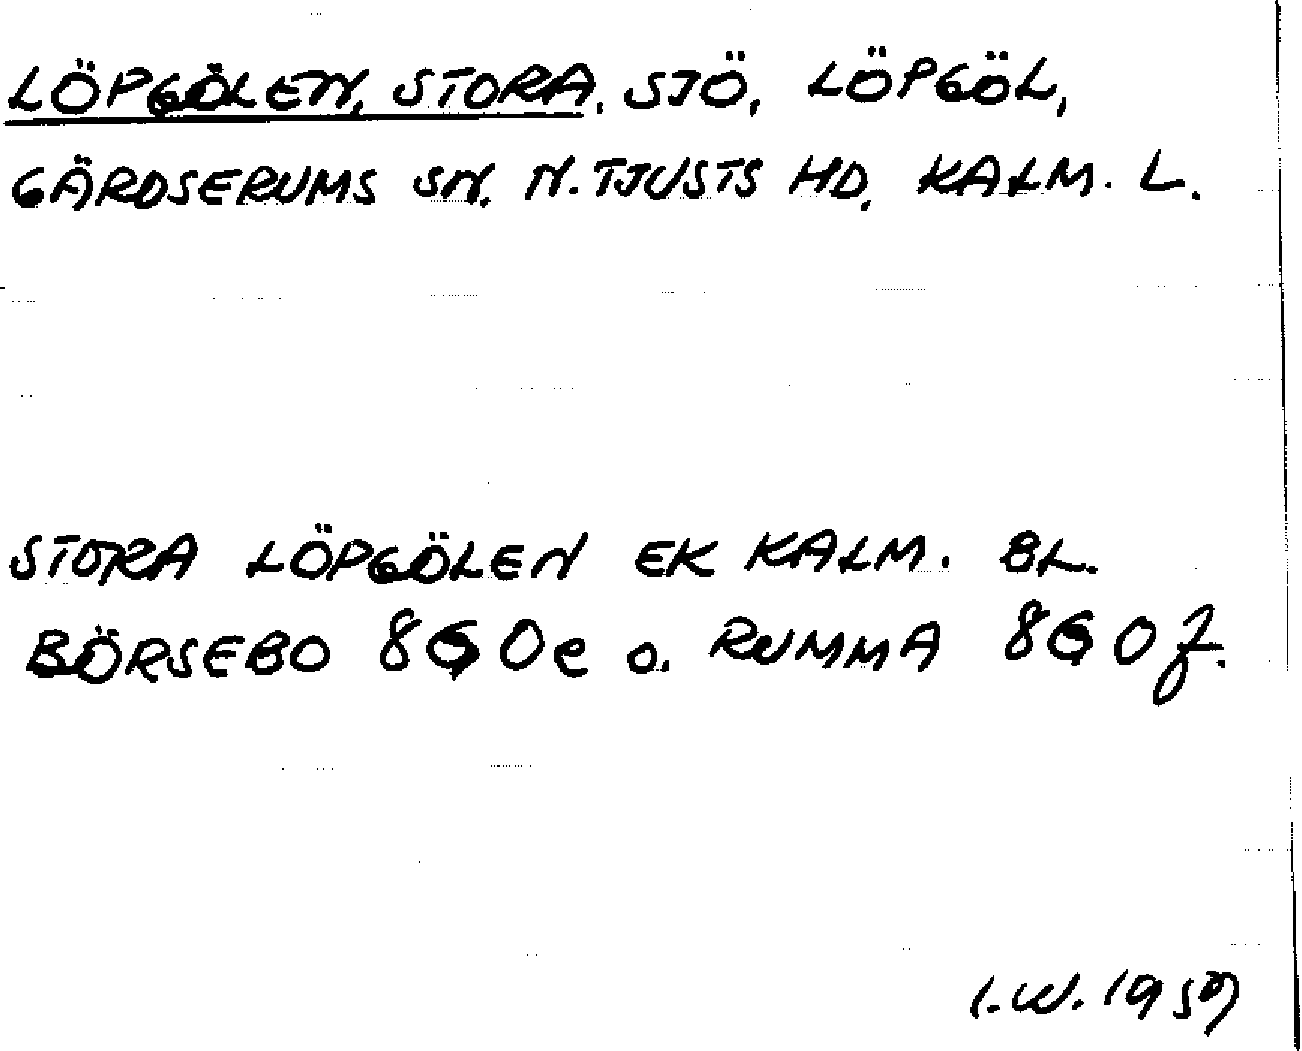 LÖPGÖLEN, STORA. SJÖ, LÖPGÖL,
GÄRDSERUMS SN. N. TJUSTS HD. KALM. L.
STORA LÖPGÖLEN EK KALM. BL.
BÖRSEBO 8G0e o. RUMMA 8G0f.
I.W. 1959